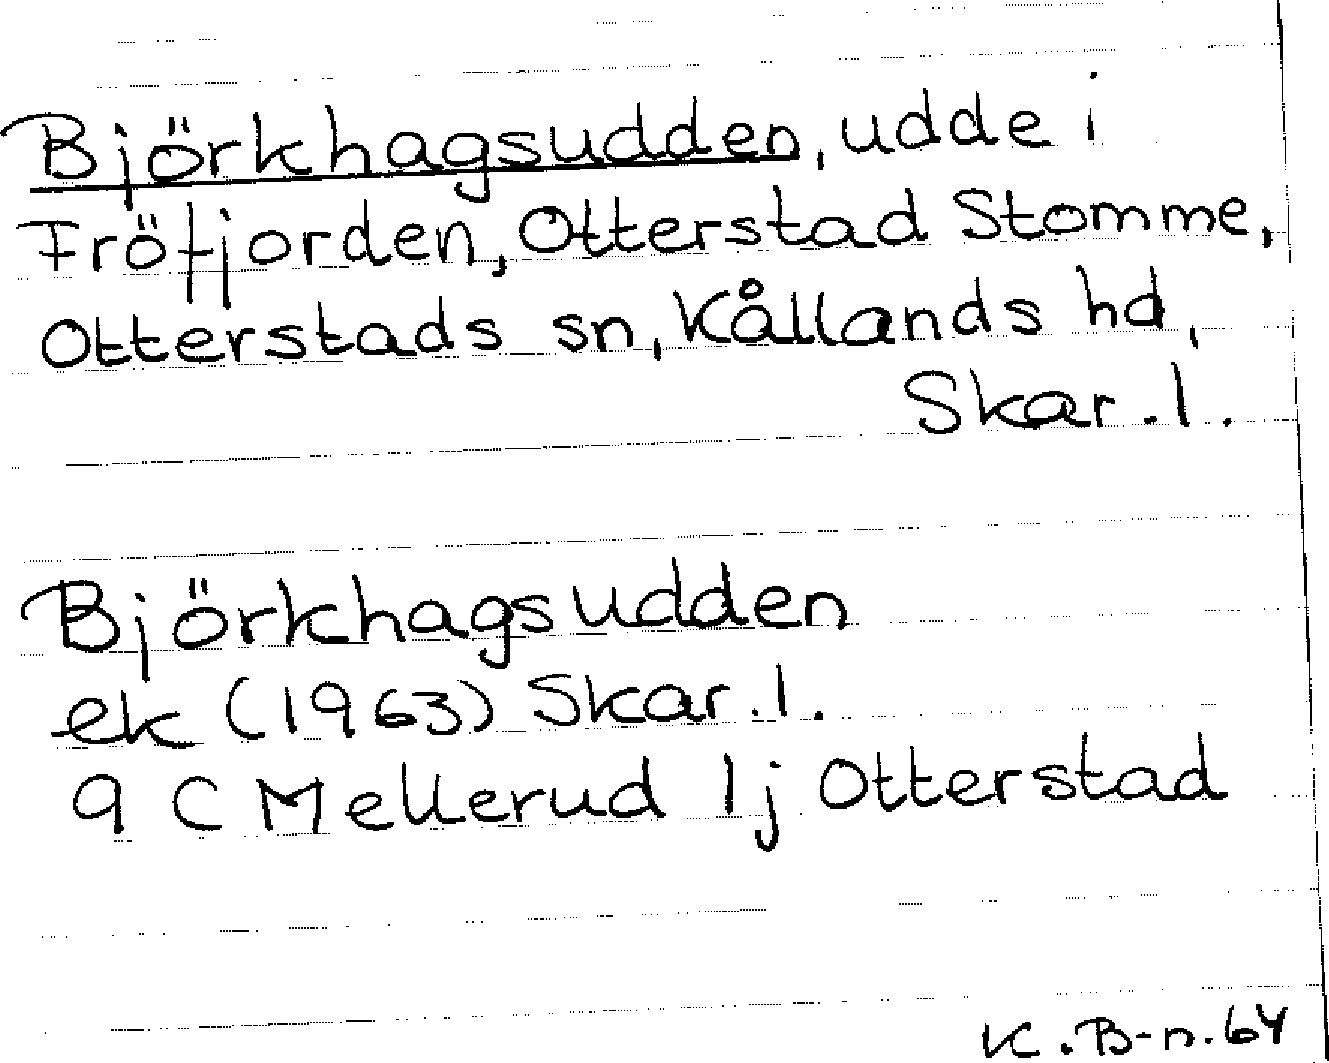 Björkhagsudden, udde i
Fröfjorden, Otterstad Stomme,
Otterstads sn, Kållands hd,
Skar. l.
Björkhagsudden
ek (1963) Skar. l.
9 C Mellerud 1j Otterstad
K. B-n. 64